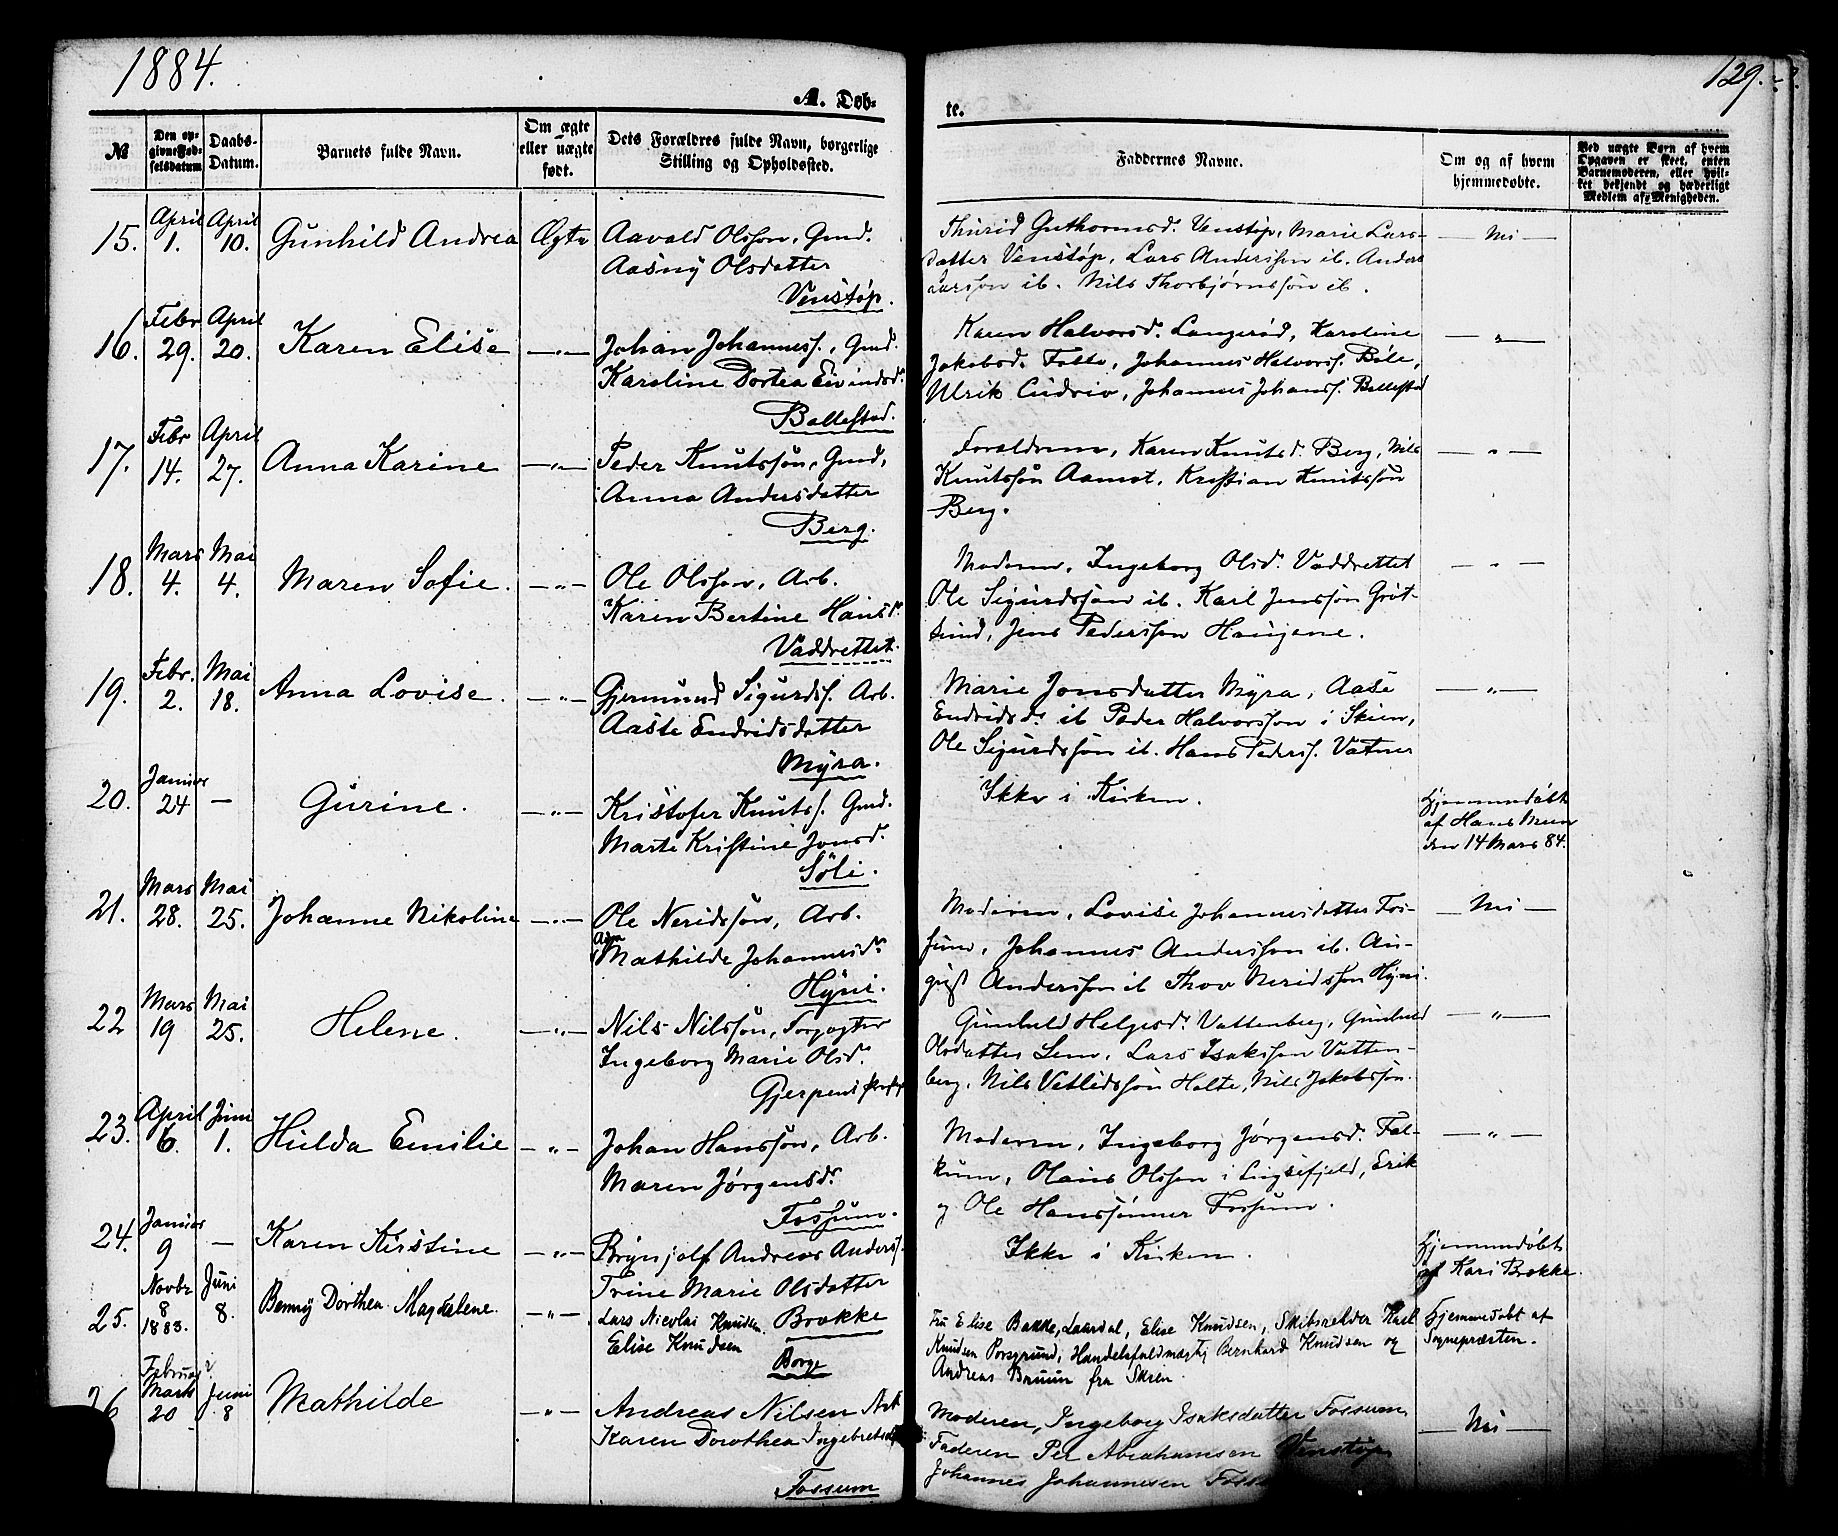 1884.
129.
A. Døb-
te.
№
Den op-
givne Fød-
selsdatum
Daabs-
Datum.
Barnets fulde Navn.
Om ægte
eller uægte
født.
Dets Forældres fulde Navn, borgerlige
Stilling og Opholdssted.
Faddernes Navne.
Om og af hvem
hjemmedøbte.
Ved uægte Børn af hvem
Opgaven er skeet, enten
Barnemoderen, eller hvil-
ket bekjendt og hæderligt
Medlem af Menigheden.
15. April 1. April 10. Gunhild Andrea Ægte
Aavald Olsson, Gmd.
Aasny Olsdatter
Venstøp.
Thurid Guthormsd. Venstøp, Marie Lars-
datter Venstøp, Lars Anderssen ib. Anders
Larsson ib. Nils Thorbjørnssøn ib.
— Nei —
16. Febr 29. April 20. Karen Elise —„—
Johan Johanness., Gmd.
Karoline Dortea Eivindsd.
Ballestad.
Karen Halvorsd. Langerød, Karoline
Jakobsd. Johannes Halvorss. Bøle,
Ulrik Johannes Johanss. Ballestad
— „ —
17. Febr 14. April 27. Anna Karine —„—
Peder Knutssøn, Gmd,
Anna Andersdatter
Berg.
Forældrene, Karen Knutsd. Berg, Nils
Knutssøn Aamot, Kristian Knutssøn
Berg.
— „ —
18. Mars 4. Mai 4. Maren Sofie. —„—
Ole Olsson, Arb.
Karen Bertine Hansd.
Vaddrettet.
Moderen, Ingeborg Olsd. Vaddrettet
Ole Sigurdssøn ib. Karl Jenssøn Grøt-
sund, Jens Pederssøn Haugene.
— „ —
19. Febr. 2. Mai 18. Anna Lovise. —„—
Gjermund Sigurdss. Arb.
Aaste Endridsdatter
Myra.
Marie Jonsdatter Myra, Aase
Endridsd. ib Peder Halvorsson i Skien,
Ole Sigurdssøn ib. Hans Peders. Vatner
— „ —
20. Januar 24 — Gurine. —„—
Kristofer Knutss. Gmd.
Marte Kristine Jonsd.
Søli.
Ikke i Kirken.
Hjemmedøbt
af Hans Moen
den 14 Mars 84.
21. Mars 28. Mai 25. Johanne Nikoline —„—
Ole Neridssøn, Arb.
Mathilde Johannesd.
Hyni.
Moderen, Lovise Johannesdatter Fos-
sum, Johannes Anderssøn ib. Au-
gust Anderssøn ib Thov Neridssøn Hyni.
— Nei —
22 Mars 19 Mai 25. Helene. —„—
Nils Nilssøn, Forpagter
Ingeborg Marie Olsd.
Gjerpens
Gunhild Helgesd. Vattenberg, Gunhild
Olsdatter Sem, Lars Isakssøn Vatten-
berg, Nils Vetlidssøn Holte, Nils Jakobssøn.
— „ —
23. April 6. Juni 1. Hulda Emilie —„—
Johan Hanssøn, Arb.
Maren Jørgensd.
Fossum.
Moderen, Ingeborg Jørgensd. Fal-
kum, Olaus Olsson i Lingsfjeld, Erik
og Ole Hanssønner Fossum.
— „ —
24. Januar 9 — Karen Kirstine —„—
Brynjolf Andreas Anderss.
Trine Marie Olsdatter
Brokke
Ikke i Kirken.
Hjemmedøbt
af Kari Brokke.
25. Novbr 8 1883. Juni 8. Benny Dorthea Magdalene. —„—
Lars Nicolai Knudsen.
Elise Knudsen
Borge
Fru Elise Bakke, Laardal, Elise Knudsen, Skibsrheder Karl
Knudsen Porsgrund, Handelsfuldmægtig Bernhard Knudsen og
Andreas Bruun fra Skien.
Hjemmedøbt af
Sognepræsten.
26 Februar? Marts 20 Juni 8 Mathilde —„—
Andreas Nilsen Arb
Karen Dorothea Ingebretsd.
Fossum
Moderen, Ingeborg Isaksdatter Fossum,
Faderen Per Abrahamsen Venstøp
Johannes Johannesen Foss
— Nei —